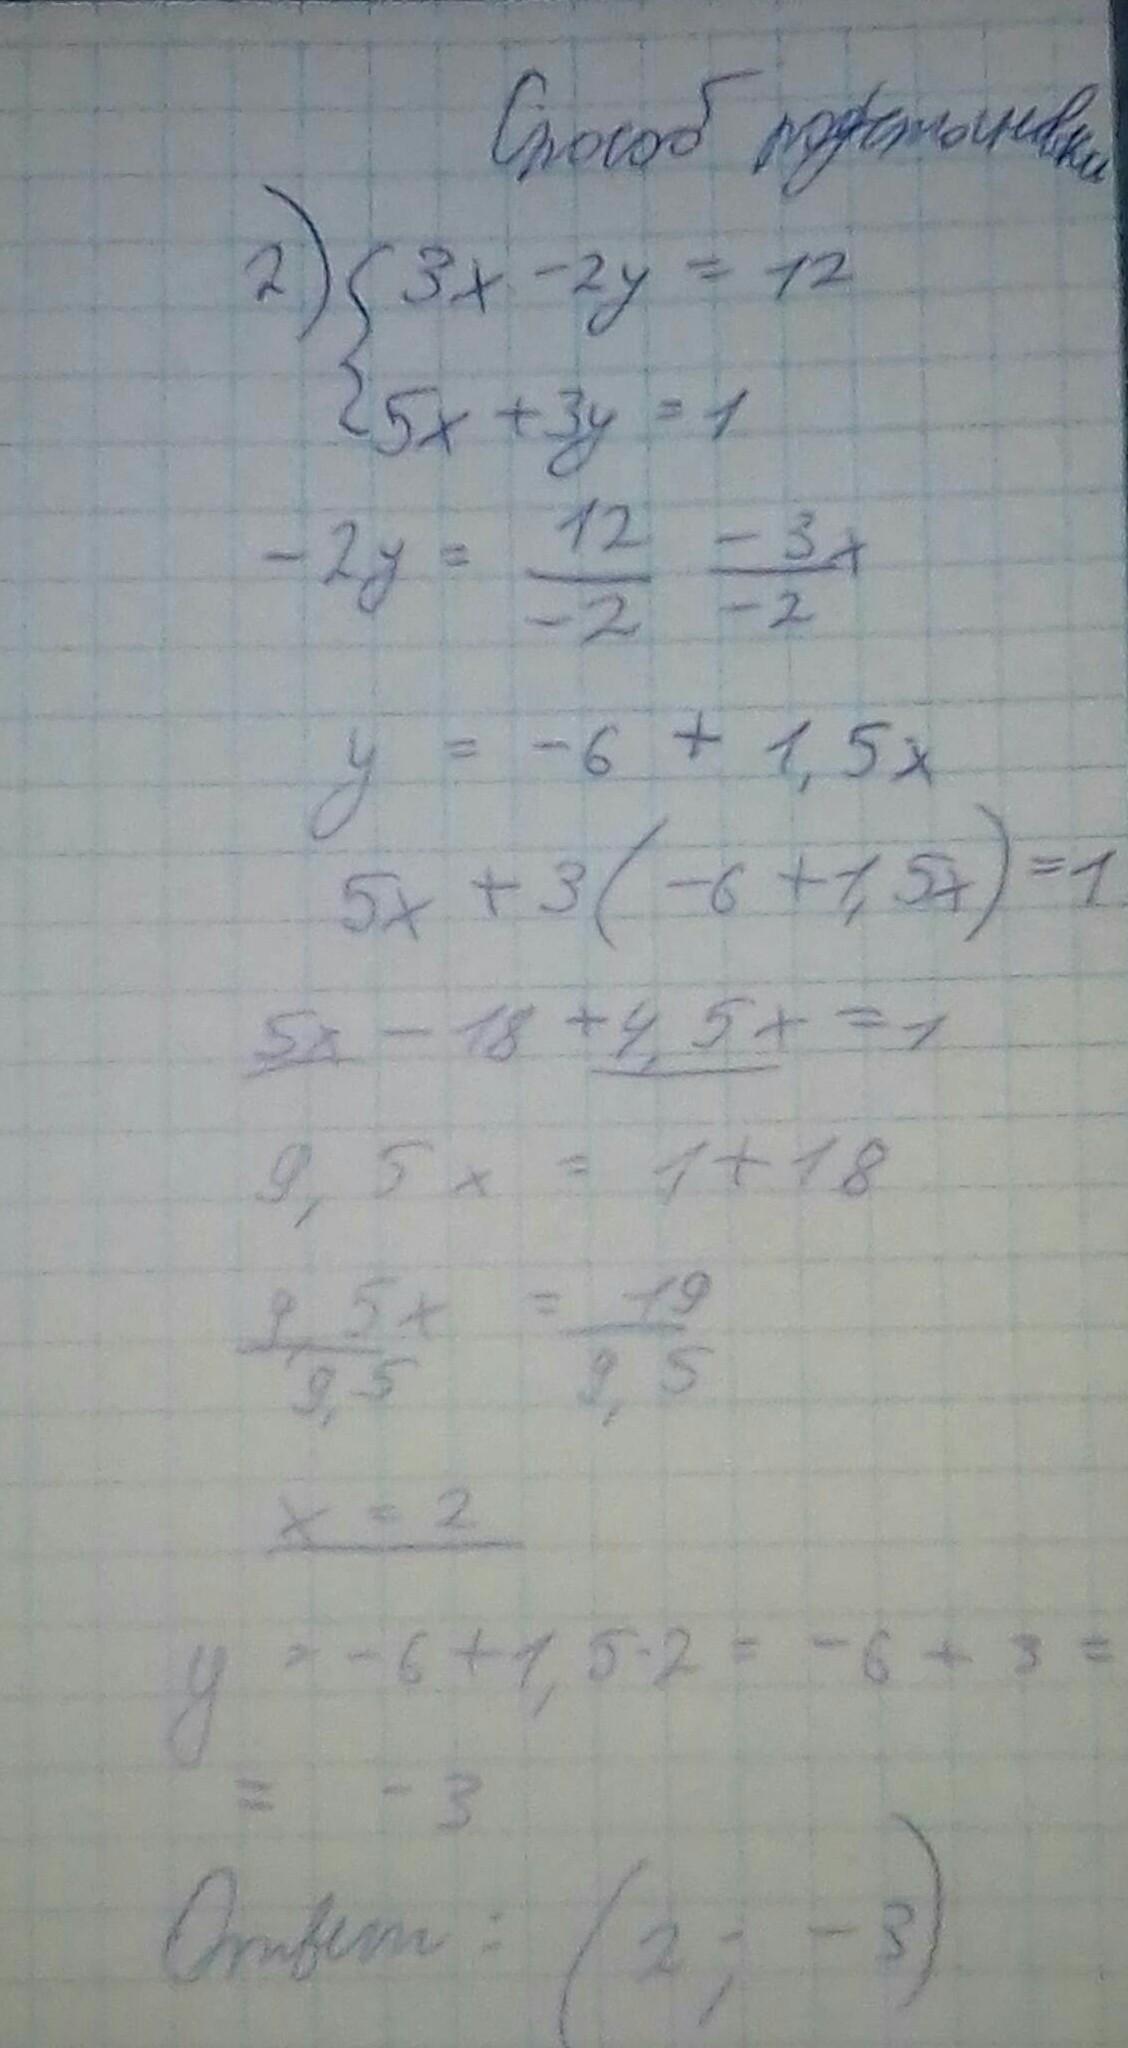 Способ подстановки
2) { 3x - 2y = 12
5x + 3y = 1
-2y = 12/-2 -3x/-2
y = -6 + 1,5x
5x + 3(-6 + 1,5x) = 1
5x - 18 + 4,5x = 1
9,5x = 1 + 18
9,5x/9,5 = 19/9,5
x = 2
y = -6 + 1,5·2 = -6 + 3 =
= -3
Ответ: (2; -3)